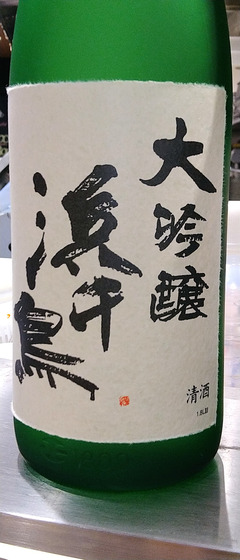 大吟醸
浜千鳥
清酒
1.8L詰